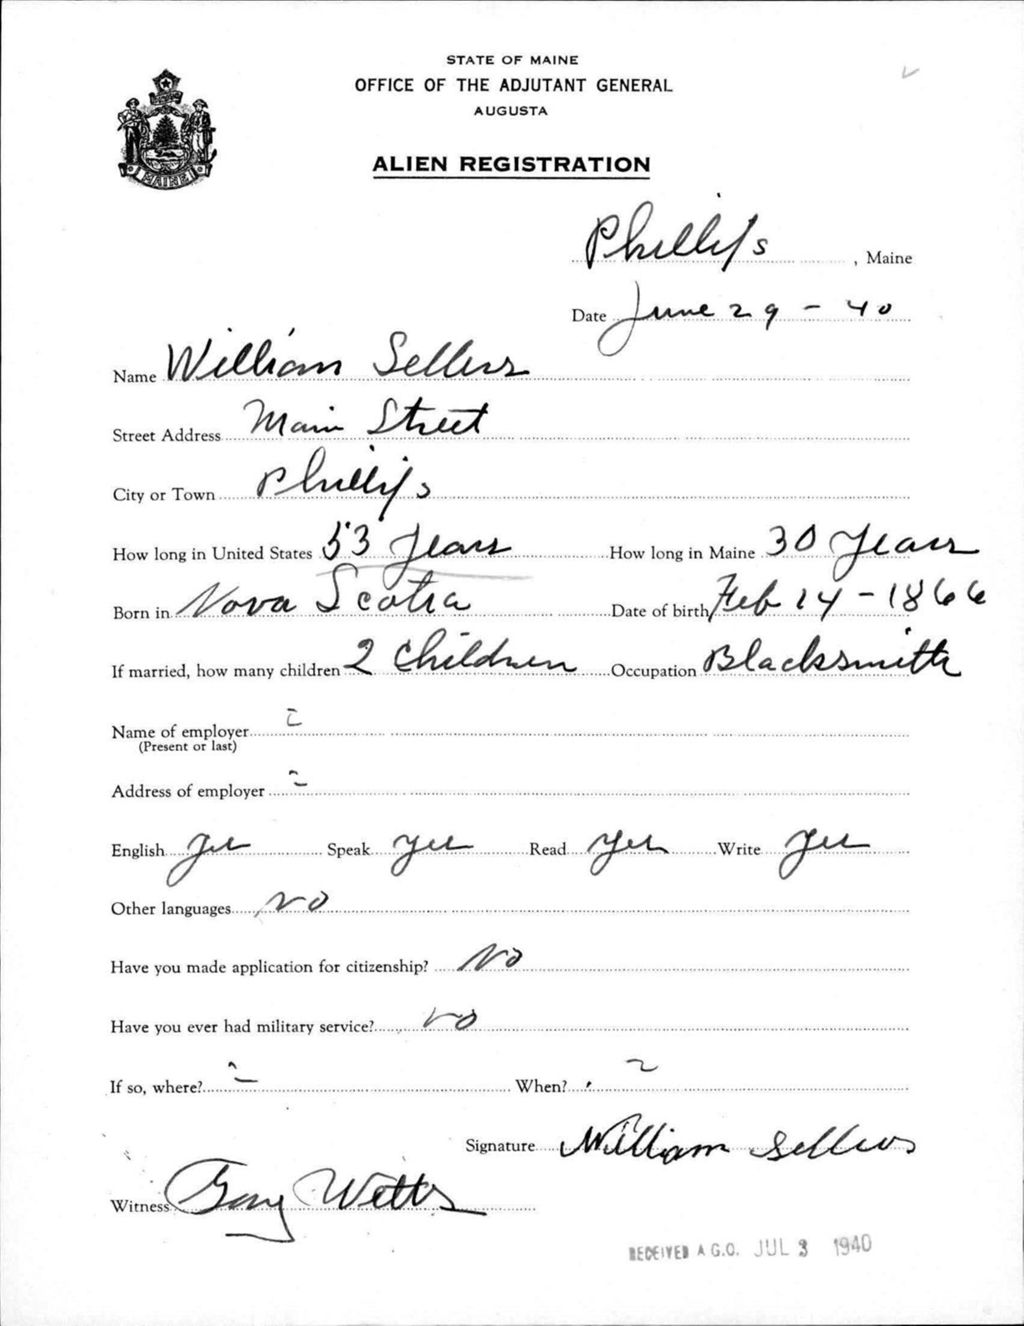 STATE OF MAINE
OFFICE OF THE ADJUTANT GENERAL
AUGUSTA
ALIEN REGISTRATION
MAINE
Phillips, Maine
Date June 29 - 40
Name William Sellers
Street Address Main Street
City or Town Phillips
How long in United States 53 Years How long in Maine 30 Years
Born in Nova Scotia Date of birth Feb 14 - 1866
If married, how many children 2 Children Occupation Blacksmith
Name of employer
(Present or last)
Address of employer
English Yes Speak Yes Read Yes Write Yes
Other languages No
Have you made application for citizenship? No
Have you ever had military service? No
If so, where? When?
Signature William Sellers
Witness
RECEIVED A.G.O. JUL 3 1940